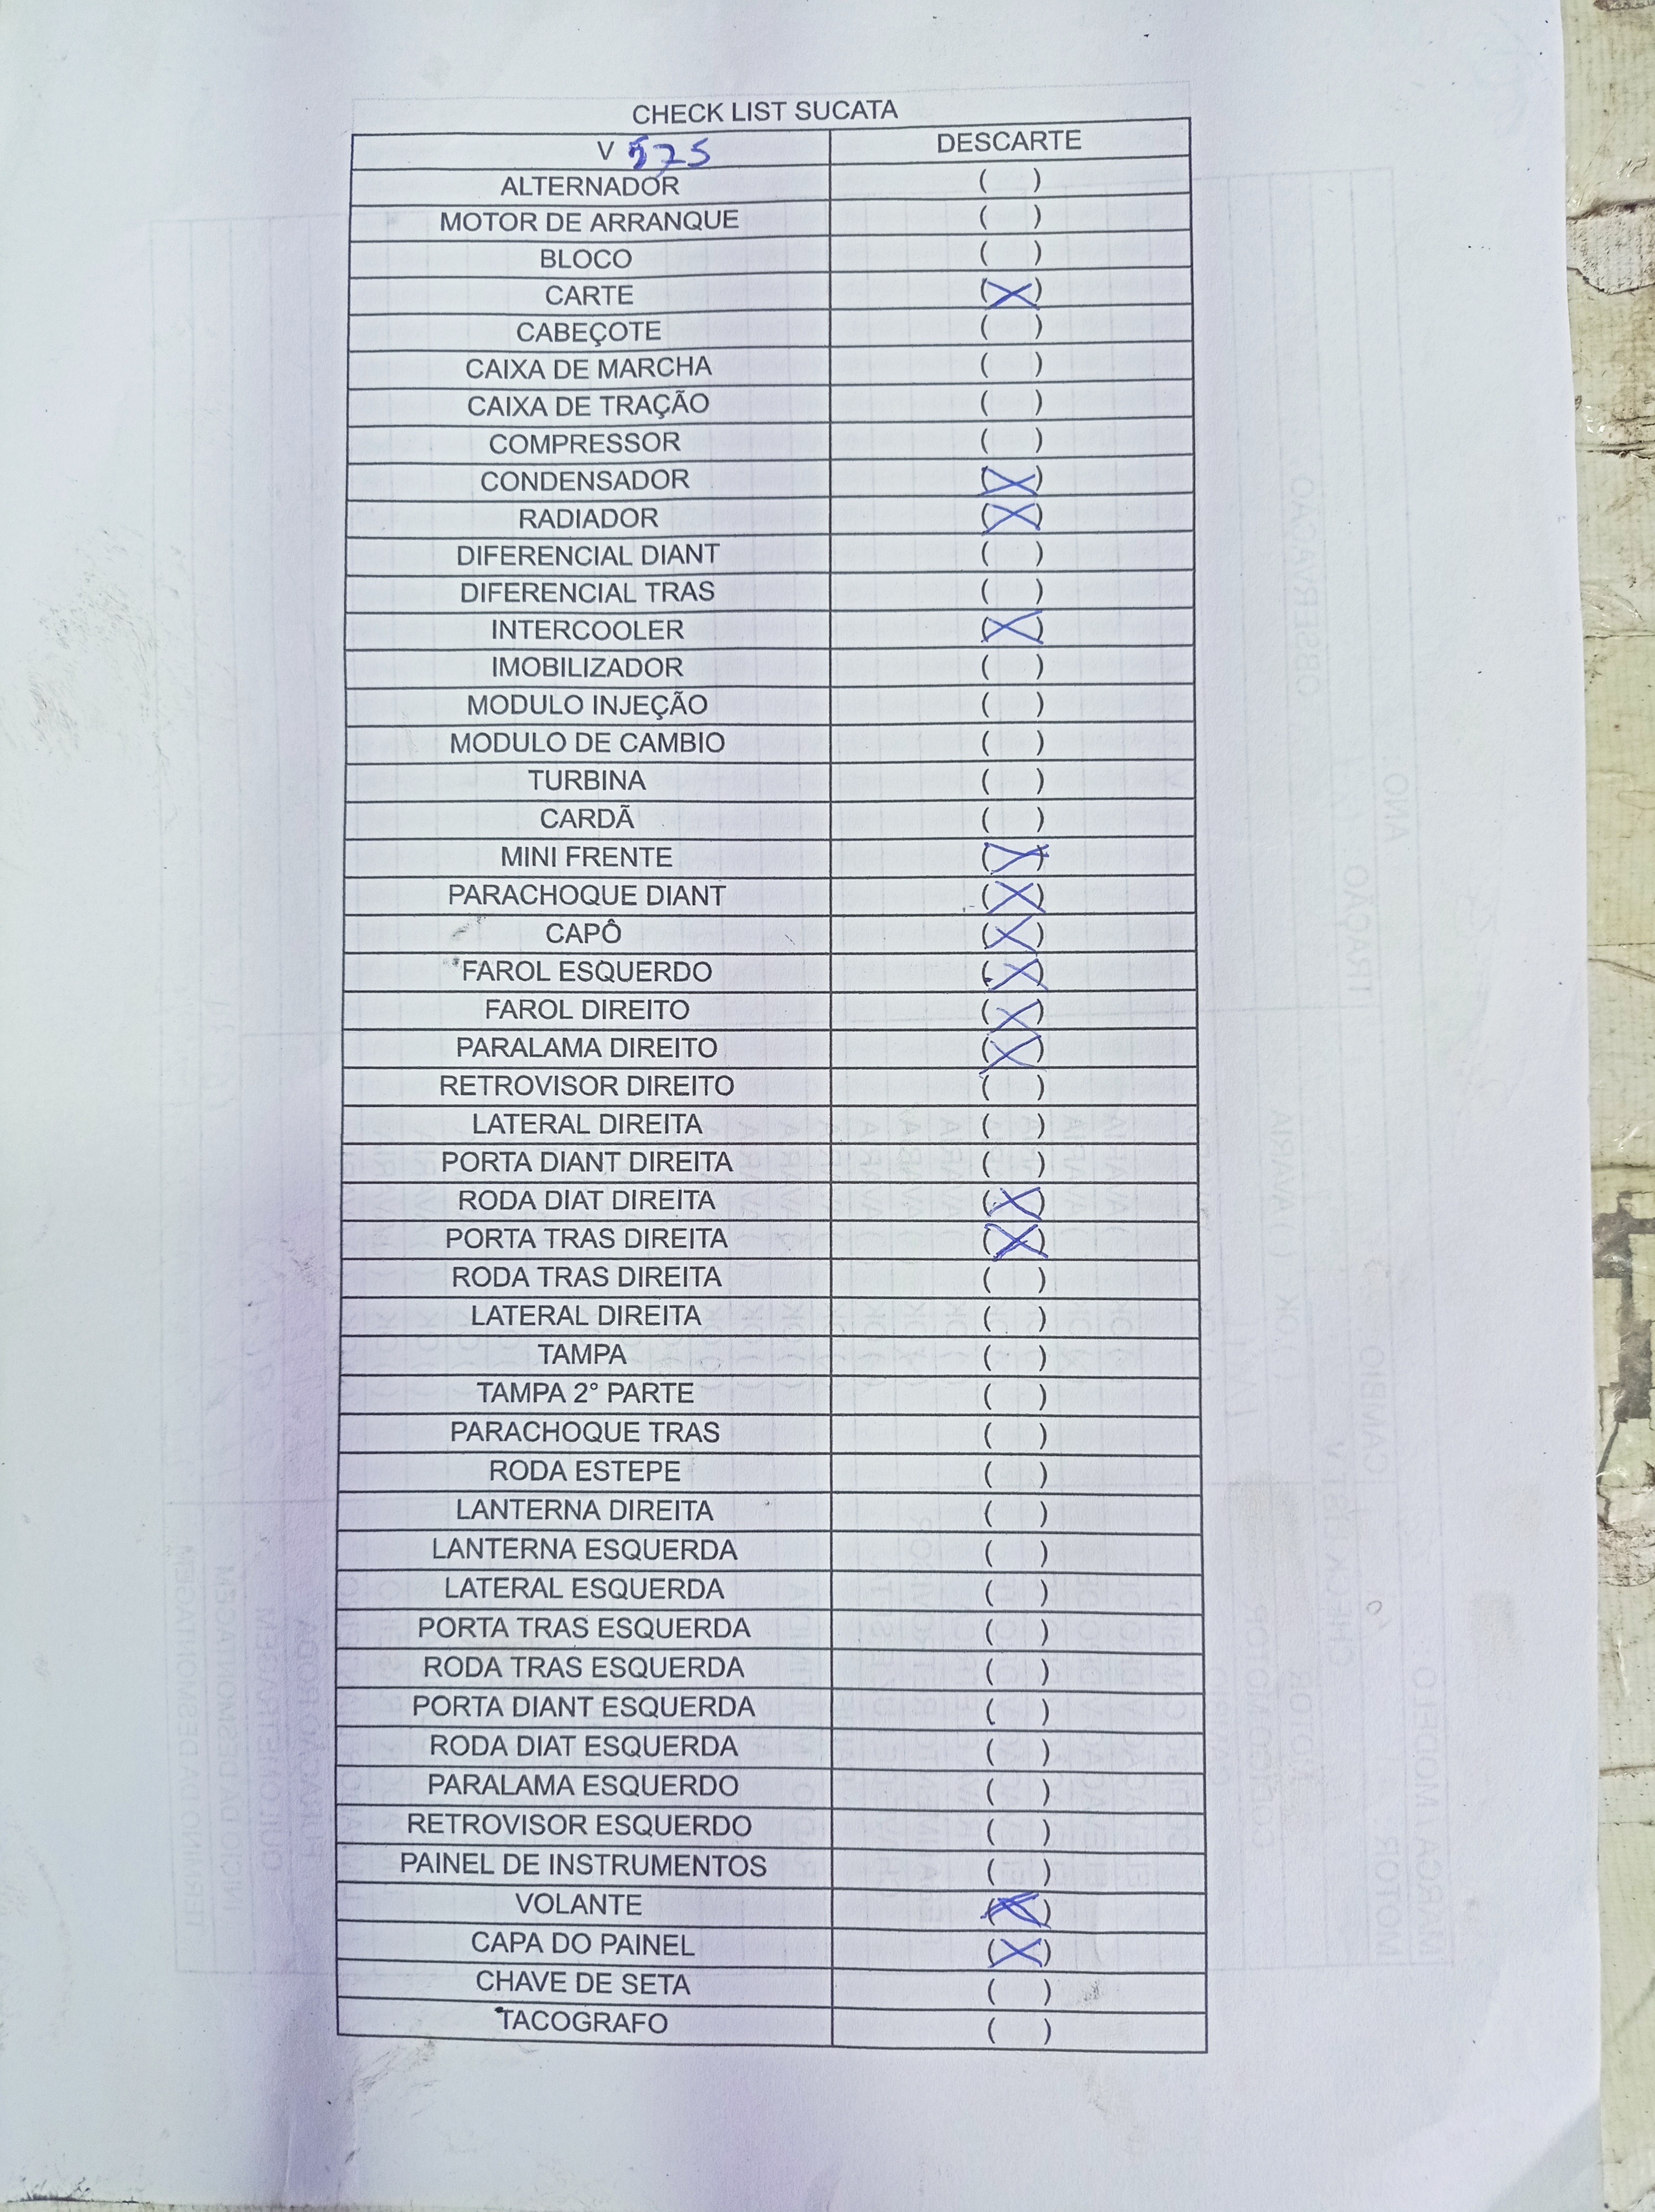 CHECK LIST SUCATA
V 575 DESCARTE
ALTERNADOR ( )
MOTOR DE ARRANQUE ( )
BLOCO ( )
CARTE (X)
CABEÇOTE ( )
CAIXA DE MARCHA ( )
CAIXA DE TRAÇÃO ( )
COMPRESSOR ( )
CONDENSADOR (X)
RADIADOR (X)
DIFERENCIAL DIANT ( )
DIFERENCIAL TRAS ( )
INTERCOOLER (X)
IMOBILIZADOR ( )
MODULO INJEÇÃO ( )
MODULO DE CAMBIO ( )
TURBINA ( )
CARDÃ ( )
MINI FRENTE (X)
PARACHOQUE DIANT (X)
CAPÔ (X)
FAROL ESQUERDO (X)
FAROL DIREITO (X)
PARALAMA DIREITO (X)
RETROVISOR DIREITO ( )
LATERAL DIREITA ( )
PORTA DIANT DIREITA ( )
RODA DIAT DIREITA (X)
PORTA TRAS DIREITA (X)
RODA TRAS DIREITA ( )
LATERAL DIREITA ( )
TAMPA ( )
TAMPA 2° PARTE ( )
PARACHOQUE TRAS ( )
RODA ESTEPE ( )
LANTERNA DIREITA ( )
LANTERNA ESQUERDA ( )
LATERAL ESQUERDA ( )
PORTA TRAS ESQUERDA ( )
RODA TRAS ESQUERDA ( )
PORTA DIANT ESQUERDA ( )
RODA DIAT ESQUERDA ( )
PARALAMA ESQUERDO ( )
RETROVISOR ESQUERDO ( )
PAINEL DE INSTRUMENTOS ( )
VOLANTE (X)
CAPA DO PAINEL (X)
CHAVE DE SETA ( )
TACOGRAFO ( )